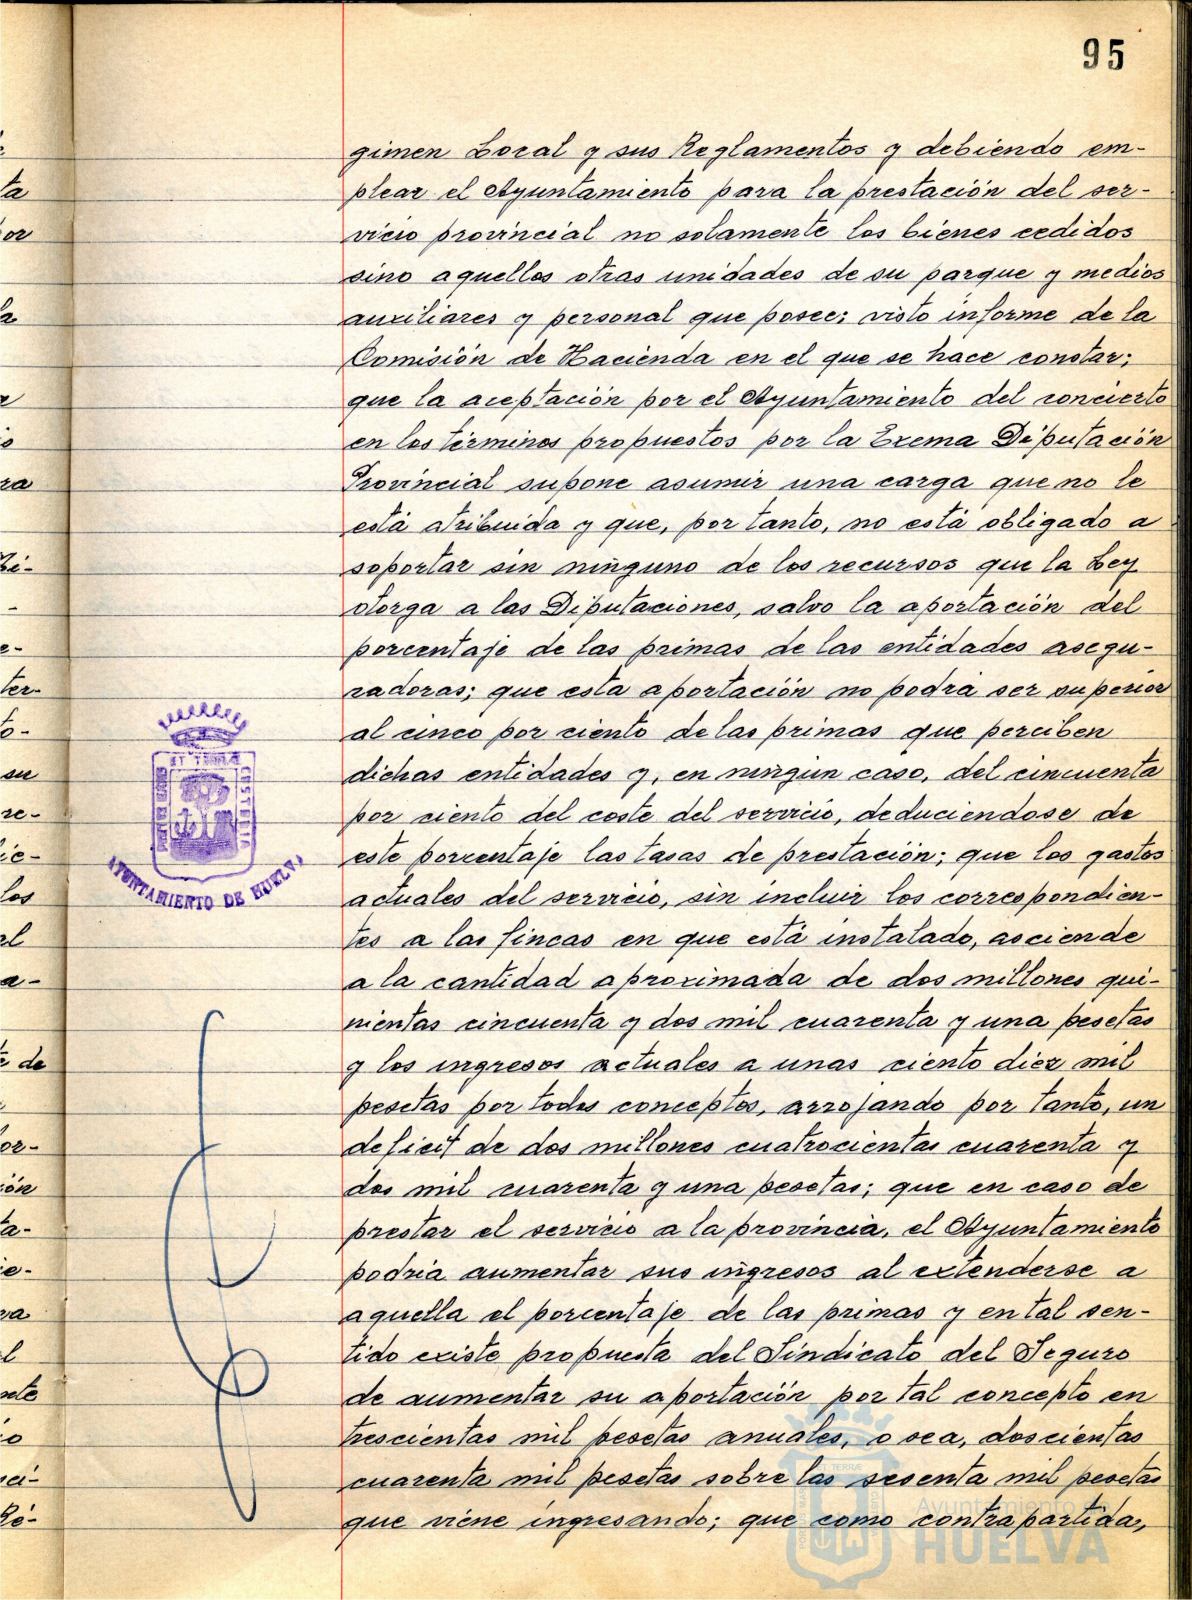 95
gimen Local y sus Reglamentos y debiendo em-
plear el Ayuntamiento para la prestación del ser-
vicio provincial no solamente los bienes cedidos
sino aquellos otras unidades de su parque y medios
auxiliares y personal que posee; visto informe de la
Comisión de Hacienda en el que se hace constar;
que la aceptación por el Ayuntamiento del concierto
en los términos propuestos por la Exema Diputación
Provincial supone asumir una carga que no le
está atribuida y que, por tanto, no está obligado a
soportar sin ninguno de los recursos que la Ley
otorga a las Diputaciones, salvo la aportación del
porcentaje de las primas de las entidades asegu-
radoras; que esta aportación no podrá ser superior
al cinco por ciento de las primas que perciben
dichas entidades y, en ningún caso, del cincuenta
por ciento del coste del servicio, deduciendose de
este porcentaje las tasas de prestación; que los gastos
actuales del servicio, sin incluir los correspondien-
tes a las fincas en que está instalado, asciende
a la cantidad aproximada de dos millones qui-
nientas cincuenta y dos mil cuarenta y una pesetas
y los ingresos actuales a unas ciento diez mil
pesetas por todos conceptos, arrojando por tanto, un
deficit de dos millones cuatrocientas cuarenta y
dos mil cuarenta y una pesetas; que en caso de
prestar el servicio a la provincia, el Ayuntamiento
podria aumentar sus ingresos al extenderse a
aquella el porcentaje de las primas y en tal sen-
tido existe propuesta del Sindicato del Seguro
de aumentar su aportación por tal concepto en
trescientas mil pesetas anuales, o sea, doscientas
cuarenta mil pesetas sobre las sesenta mil pesetas
que viene ingresando; que como contrapartida,
AYUNTAMIENTO DE HUELVA
Ayuntamiento de
HUELVA